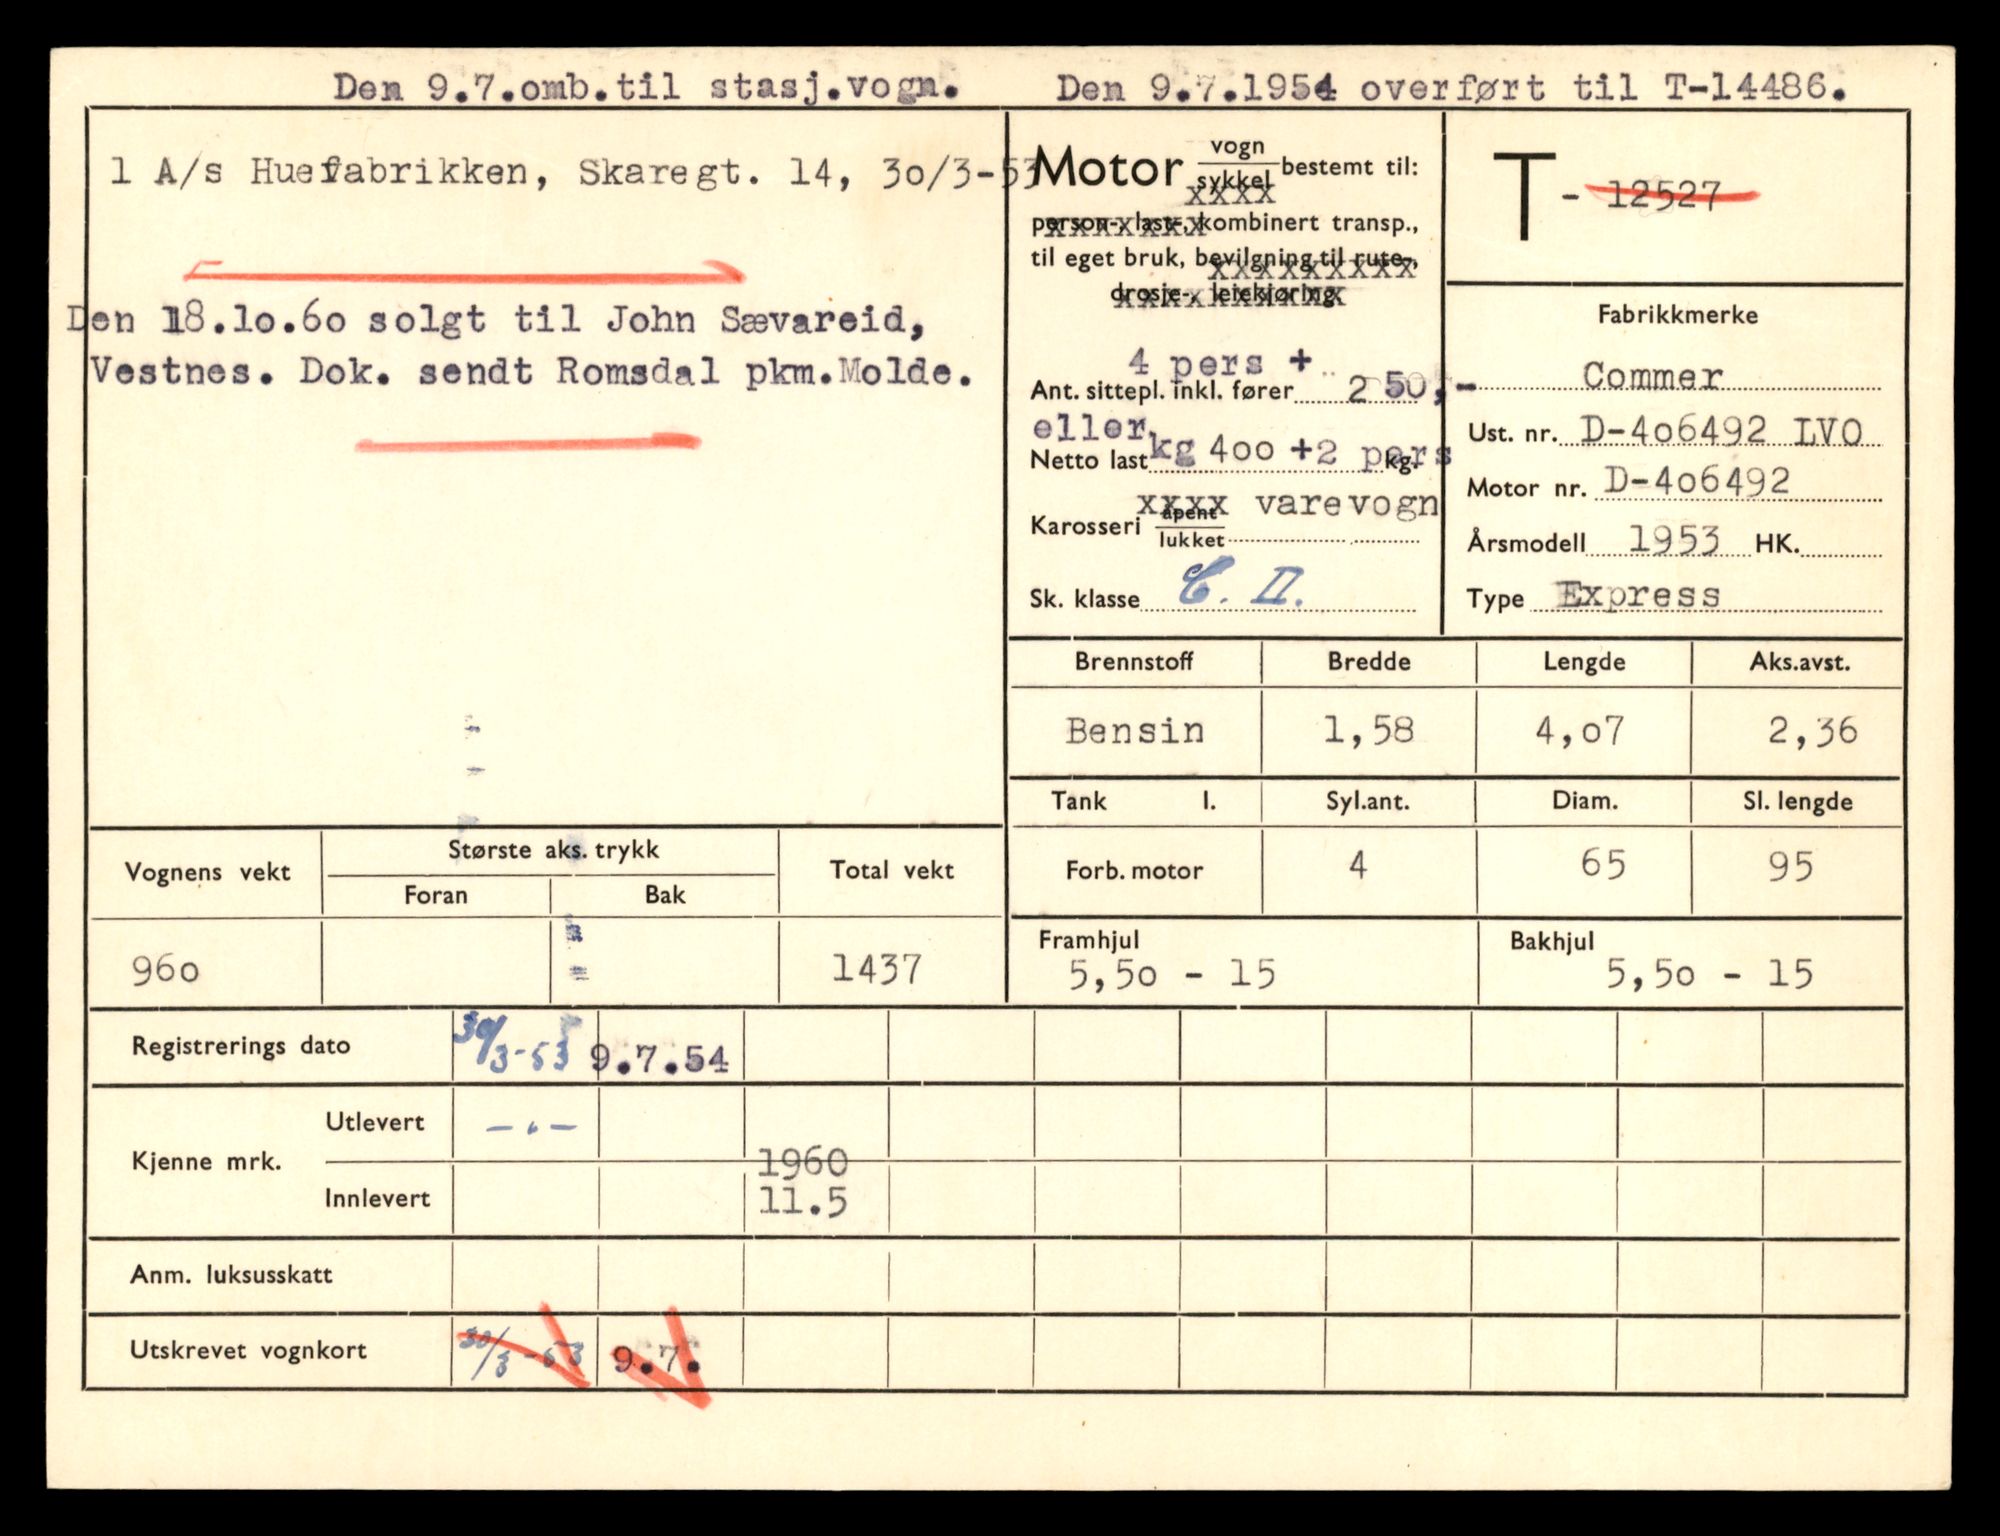 Den 9.7.omb.til stasj.vogn. Den 9.7.1954 overført til T-14486.
1 A/s Huefabrikken, Skaregt. 14, 30/3-53
Den 18.10.60 solgt til John Sævareid,
Vestnes. Dok. sendt Romsdal pkm.Molde.
Motor vogn sykkel bestemt til:
xxxx
person-, last-, kombinert transp.,
til eget bruk, bevilgning til rute-,
drosje-, leiekjøring.
4 pers +
Ant. sittepl. inkl. fører 2 50,-
eller
Netto last kg 400 +2 pers kg.
xxxx varevogn
Karosseri åpent lukket
Sk. klasse C. II.
T - 12527
Fabrikkmerke
Commer
Ust. nr. D-406492 LVO
Motor nr. D-406492
Årsmodell 1953 HK.
Type Express
Brennstoff Bredde Lengde Aks.avst.
Bensin 1,58 4,07 2,36
Tank l. Syl.ant. Diam. Sl. lengde
Forb. motor 4 65 95
Framhjul Bakhjul
5,50 - 15 5,50 - 15
Vognens vekt Største aks. trykk Total vekt
Foran Bak
960 1437
Registrerings dato 30/3-53 9.7.54
Utlevert -"-
Kjenne mrk. 1960
Innlevert 11.5
Anm. luksusskatt
Utskrevet vognkort 30/3-53 9.7.